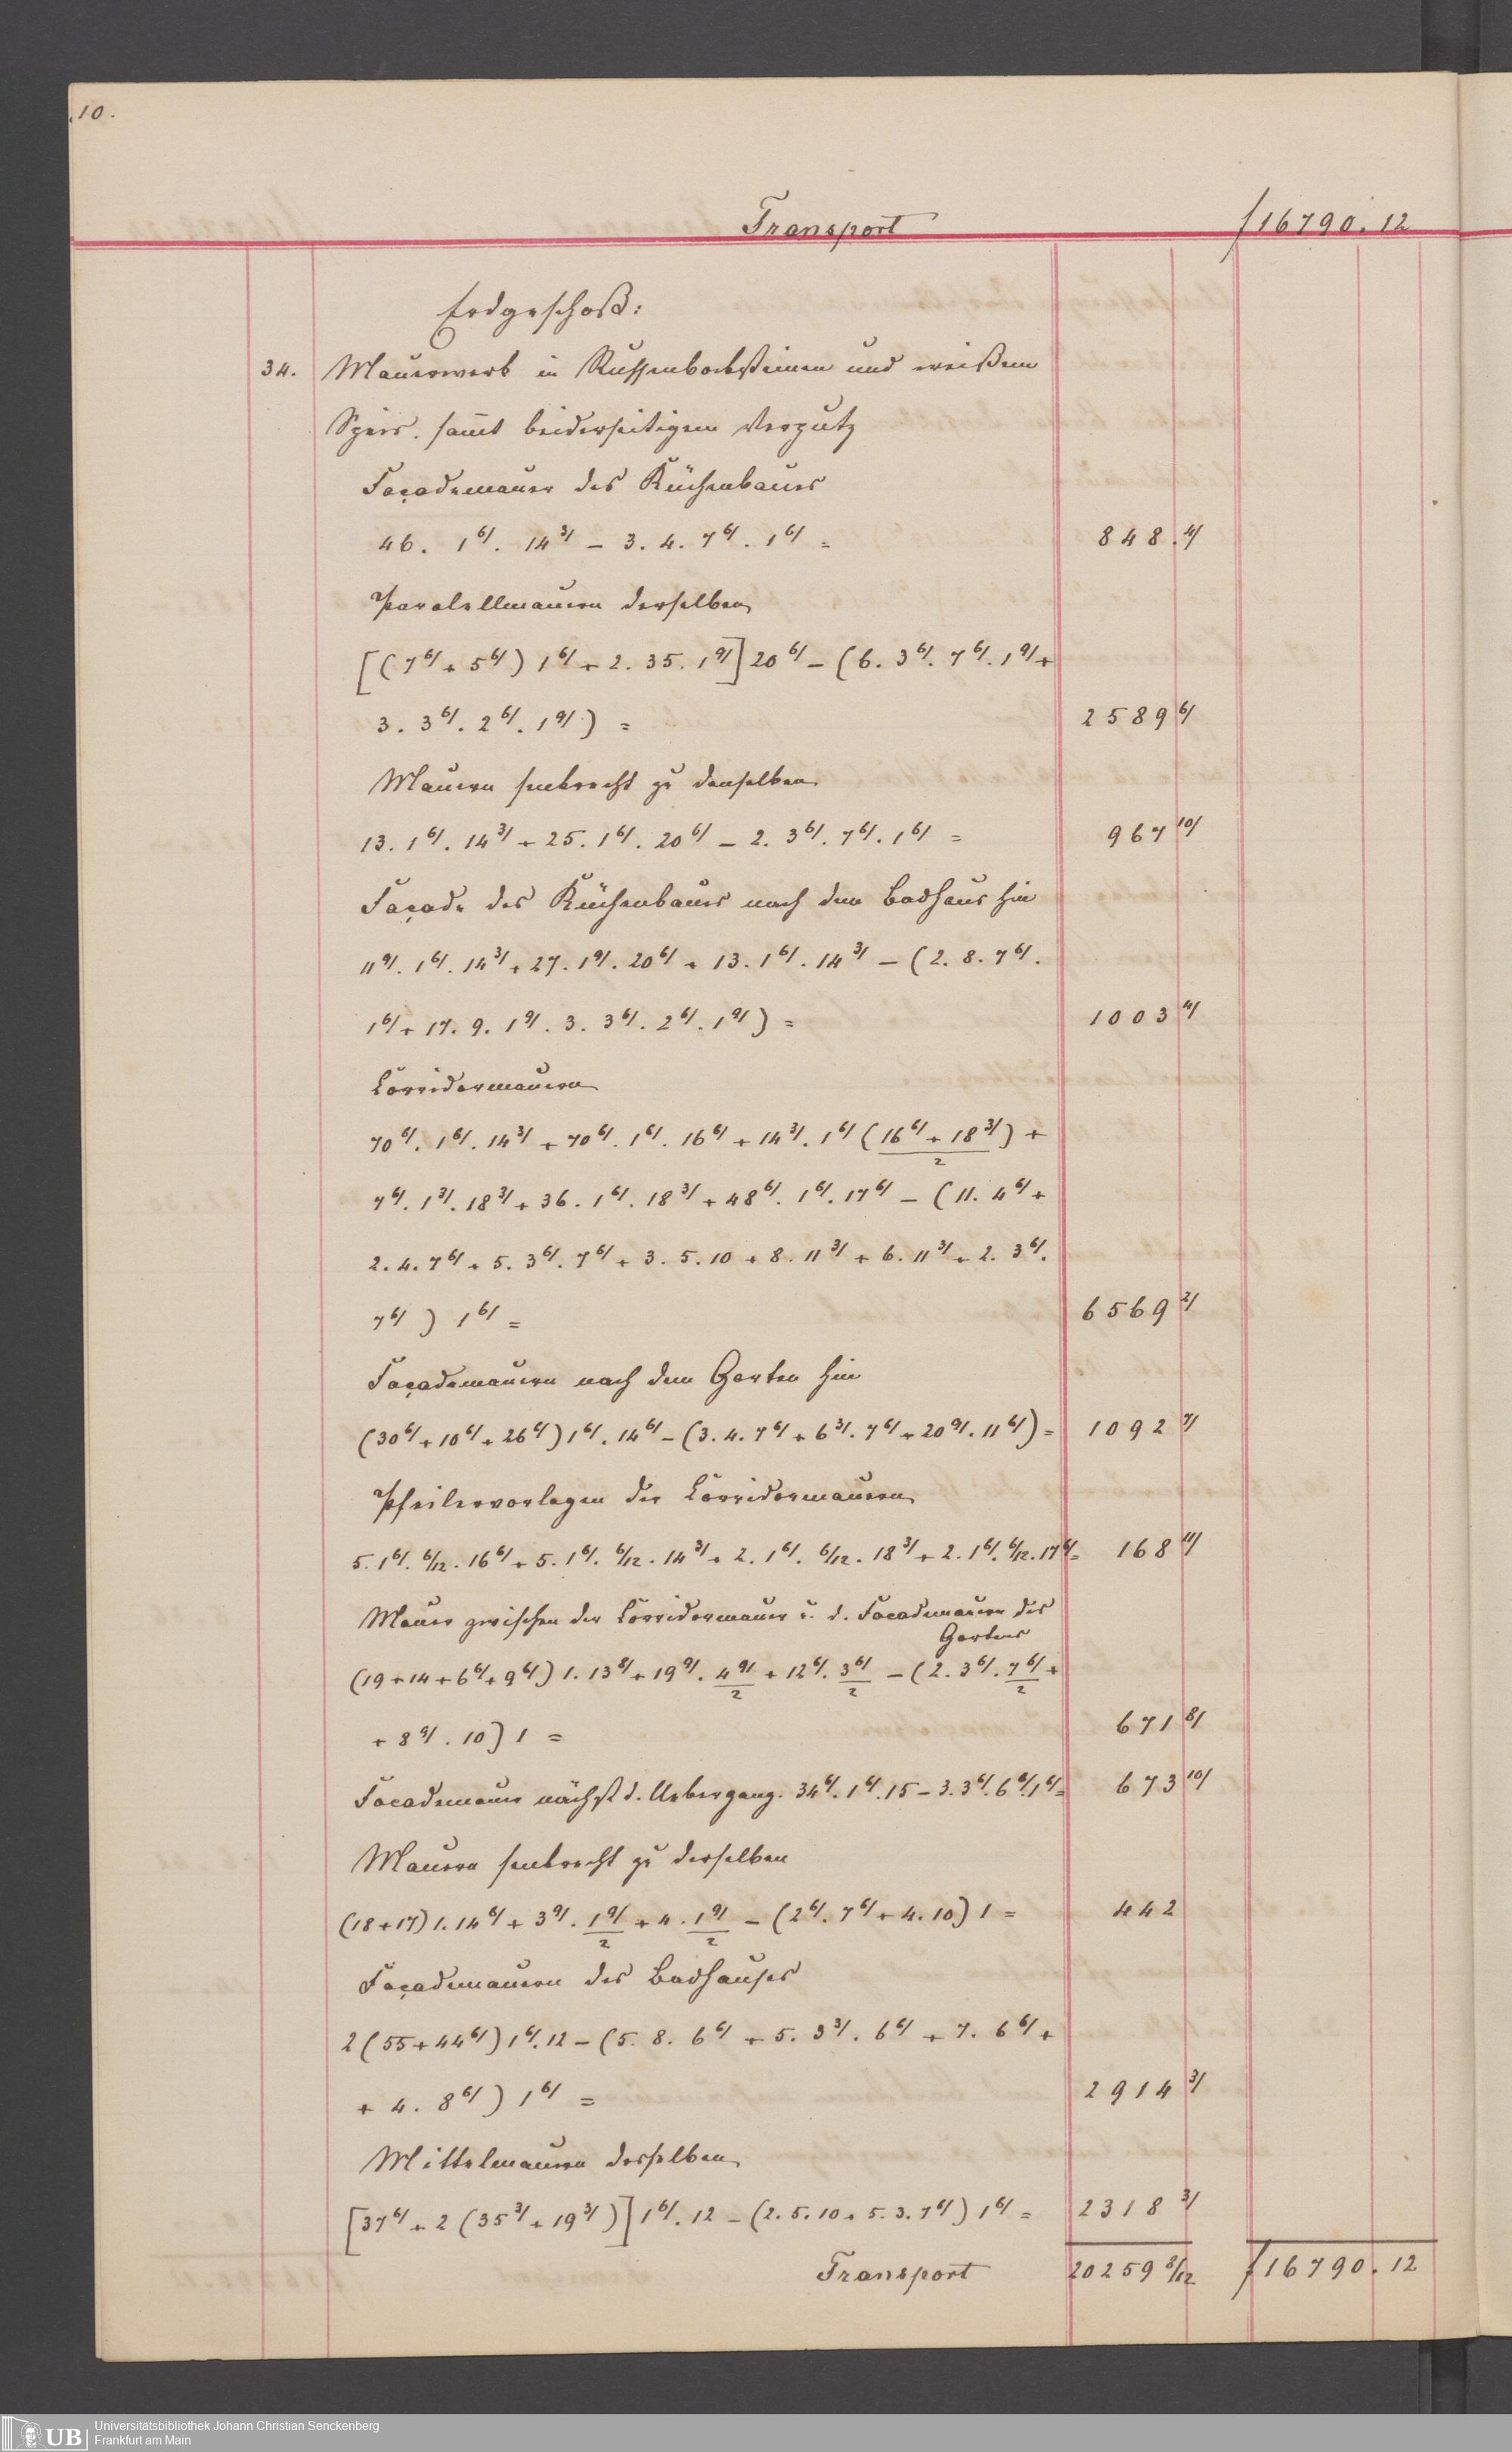 10.
Transport f 16790. 12
Erdgeschoß:
34. Mauerwerk in Russenbacksteinen und weißem
Speis. sam̄t beiderseitigem Verputz
Façademauer des Küchenbaues
46. 1 6/. 14 3/ – 3. 4. 7 6/. 1 6/ = 848. 4/
Paralellmauern derselben
[(7 6/ + 5 6/) 1 6/ + 2. 35. 1 9/] 20 6/ – (6. 3 6/. 7 6/. 1 9/ +
3. 3 6/. 2 6/. 1 9/) = 2589 6/
Mauern senkrecht zu denselben
13. 1 6/. 14 3/ + 25. 1 6/. 20 6/ – 2. 3 6/. 7 6/. 1 6/ = 967 10/
Façade des Küchenbaues nach dem Badhaus hin
11 9/. 1 6/. 14 3/ + 27. 1 9/. 20 6/ + 13. 1 6/. 14 3/ – (2. 8. 7 6/.
1 6/ + 17. 9. 1 9/. 3. 3 6/. 2 6/. 1 9/) = 1003 4/
Corridormauern
70 6/. 1 6/. 14 3/ + 70 6/. 1 6/. 16 6/ + 14 3/. 1 6/ (16 6/ + 18 3/) +
2
7 6/. 1 3/. 18 3/ + 36. 1 6/. 18 3/ + 48 6/. 1 6/. 17 6/ – (11. 4 6/ +
2. 4. 7 6/ + 5. 3 6/. 7 6/ + 3. 5. 10 + 8. 11 3/ + 6. 11 3/ + 2. 3 6/.
7 6/) 1 6/ = 6569 2/
Façademauern nach dem Garten hin
(30 6/ + 10 6/ + 26 6/) 1 6/. 14 6/ – (3. 4. 7 6/ + 6 3/. 7 6/ + 20 9/. 11 6/) = 1092 7/
Pfeilervorlagen der Corridormauern
5. 1 6/. 6/12. 16 6/ + 5. 1 6/. 6/12. 14 3/ + 2. 1 6/. 6/12. 18 3/ + 2. 1 6/. 6/12. 17 6/ = 168 11/
Mauer zwischen der Corridormauer u. d. Facademauern des
Gartens
(19 + 14 + 6 6/ + 9 6/) 1. 13 8/ + 19 9/. 4 9/ + 12 6/. 3 6/ – (2. 3 6/. 7 6/ +
2 2 2
+ 8 9/. 10) 1 = 671 8/
Facademauer nächst d. Uebergang. 34 6/. 1 6/. 15 – 3. 3 6/. 6 6/. 1 6/ = 673 10/
Mauern senkrecht zu derselben
(18 + 17) 1. 14 6/ + 3 9/. 1 9/ + 4. 1 9/ – (2 6/. 7 6/ + 4. 10) 1 = 442
2 2
Façademauern des Badhauses
2 (55 + 44 6/) 1 6/. 12 – (5. 8. 6 6/ + 5. 3 3/. 6 6/ + 7. 6 6/ +
+ 4. 8 6/) 1 6/ = 2914 3/
Mittelmauern desselben
[37 6/ + 2 (35 3/ + 19 3/)] 1 6/. 12 – (2. 5. 10 + 5. 3. 7 6/) 1 6/ = 2318 3/
Transport 20259 8/12 f 16790. 12
UB
Universitätsbibliothek Johann Christian Senckenberg
Frankfurt am Main